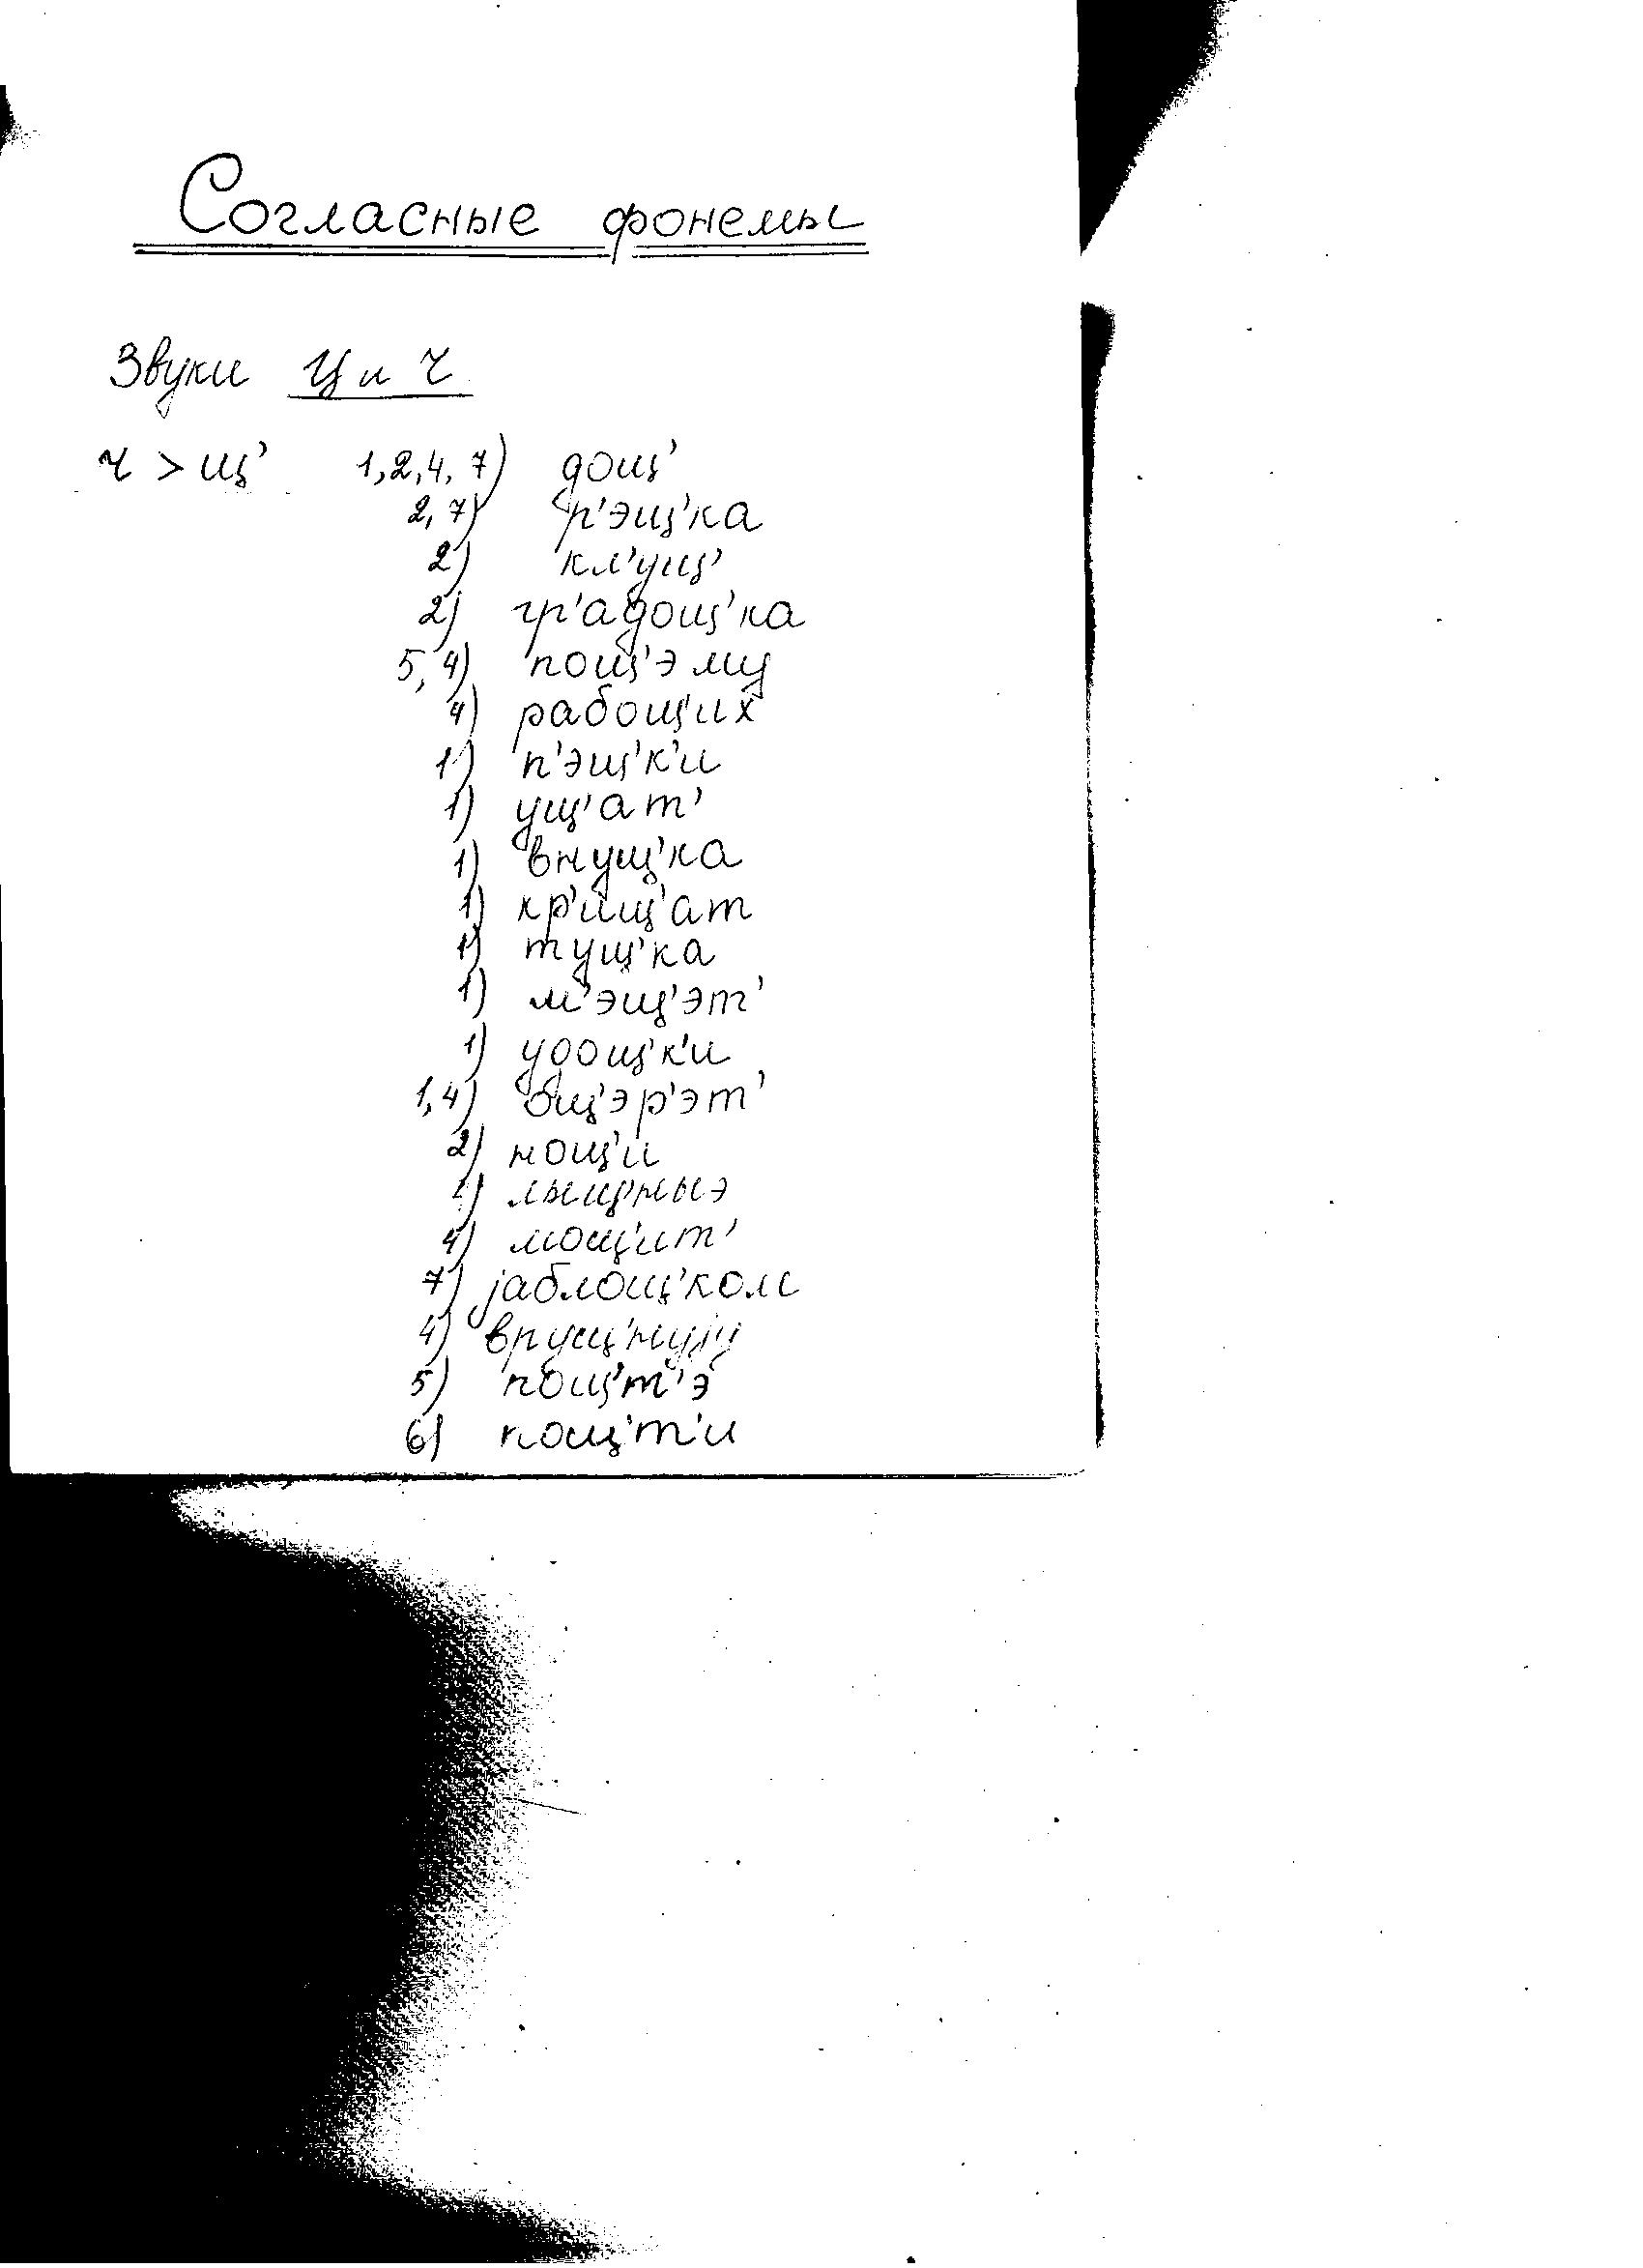 Согласные фонемы
Звуки Ц и Ч
ч > щ' 1,2,4,7) дощ'
2,7) р'эщ'ка
2) кл'ущ'
2) гр'адощ'ка
5,4) пощ'эму
4) рабощ'их
1) п'эщ'к'и
1) ущ'ат'
1) внущ'ка
1) кр'ищ'ат
1) тущ'ка
1) м'эщ'эт'
1) удощ'к'и
1,4) ощ'эр'эт'
2) нощ'и
лыщ'ныэ
4) мощ'ит'
7) jаблощ'ком
4) врущ'нуjу
5) пощ'т'э
6) пощ'т'и